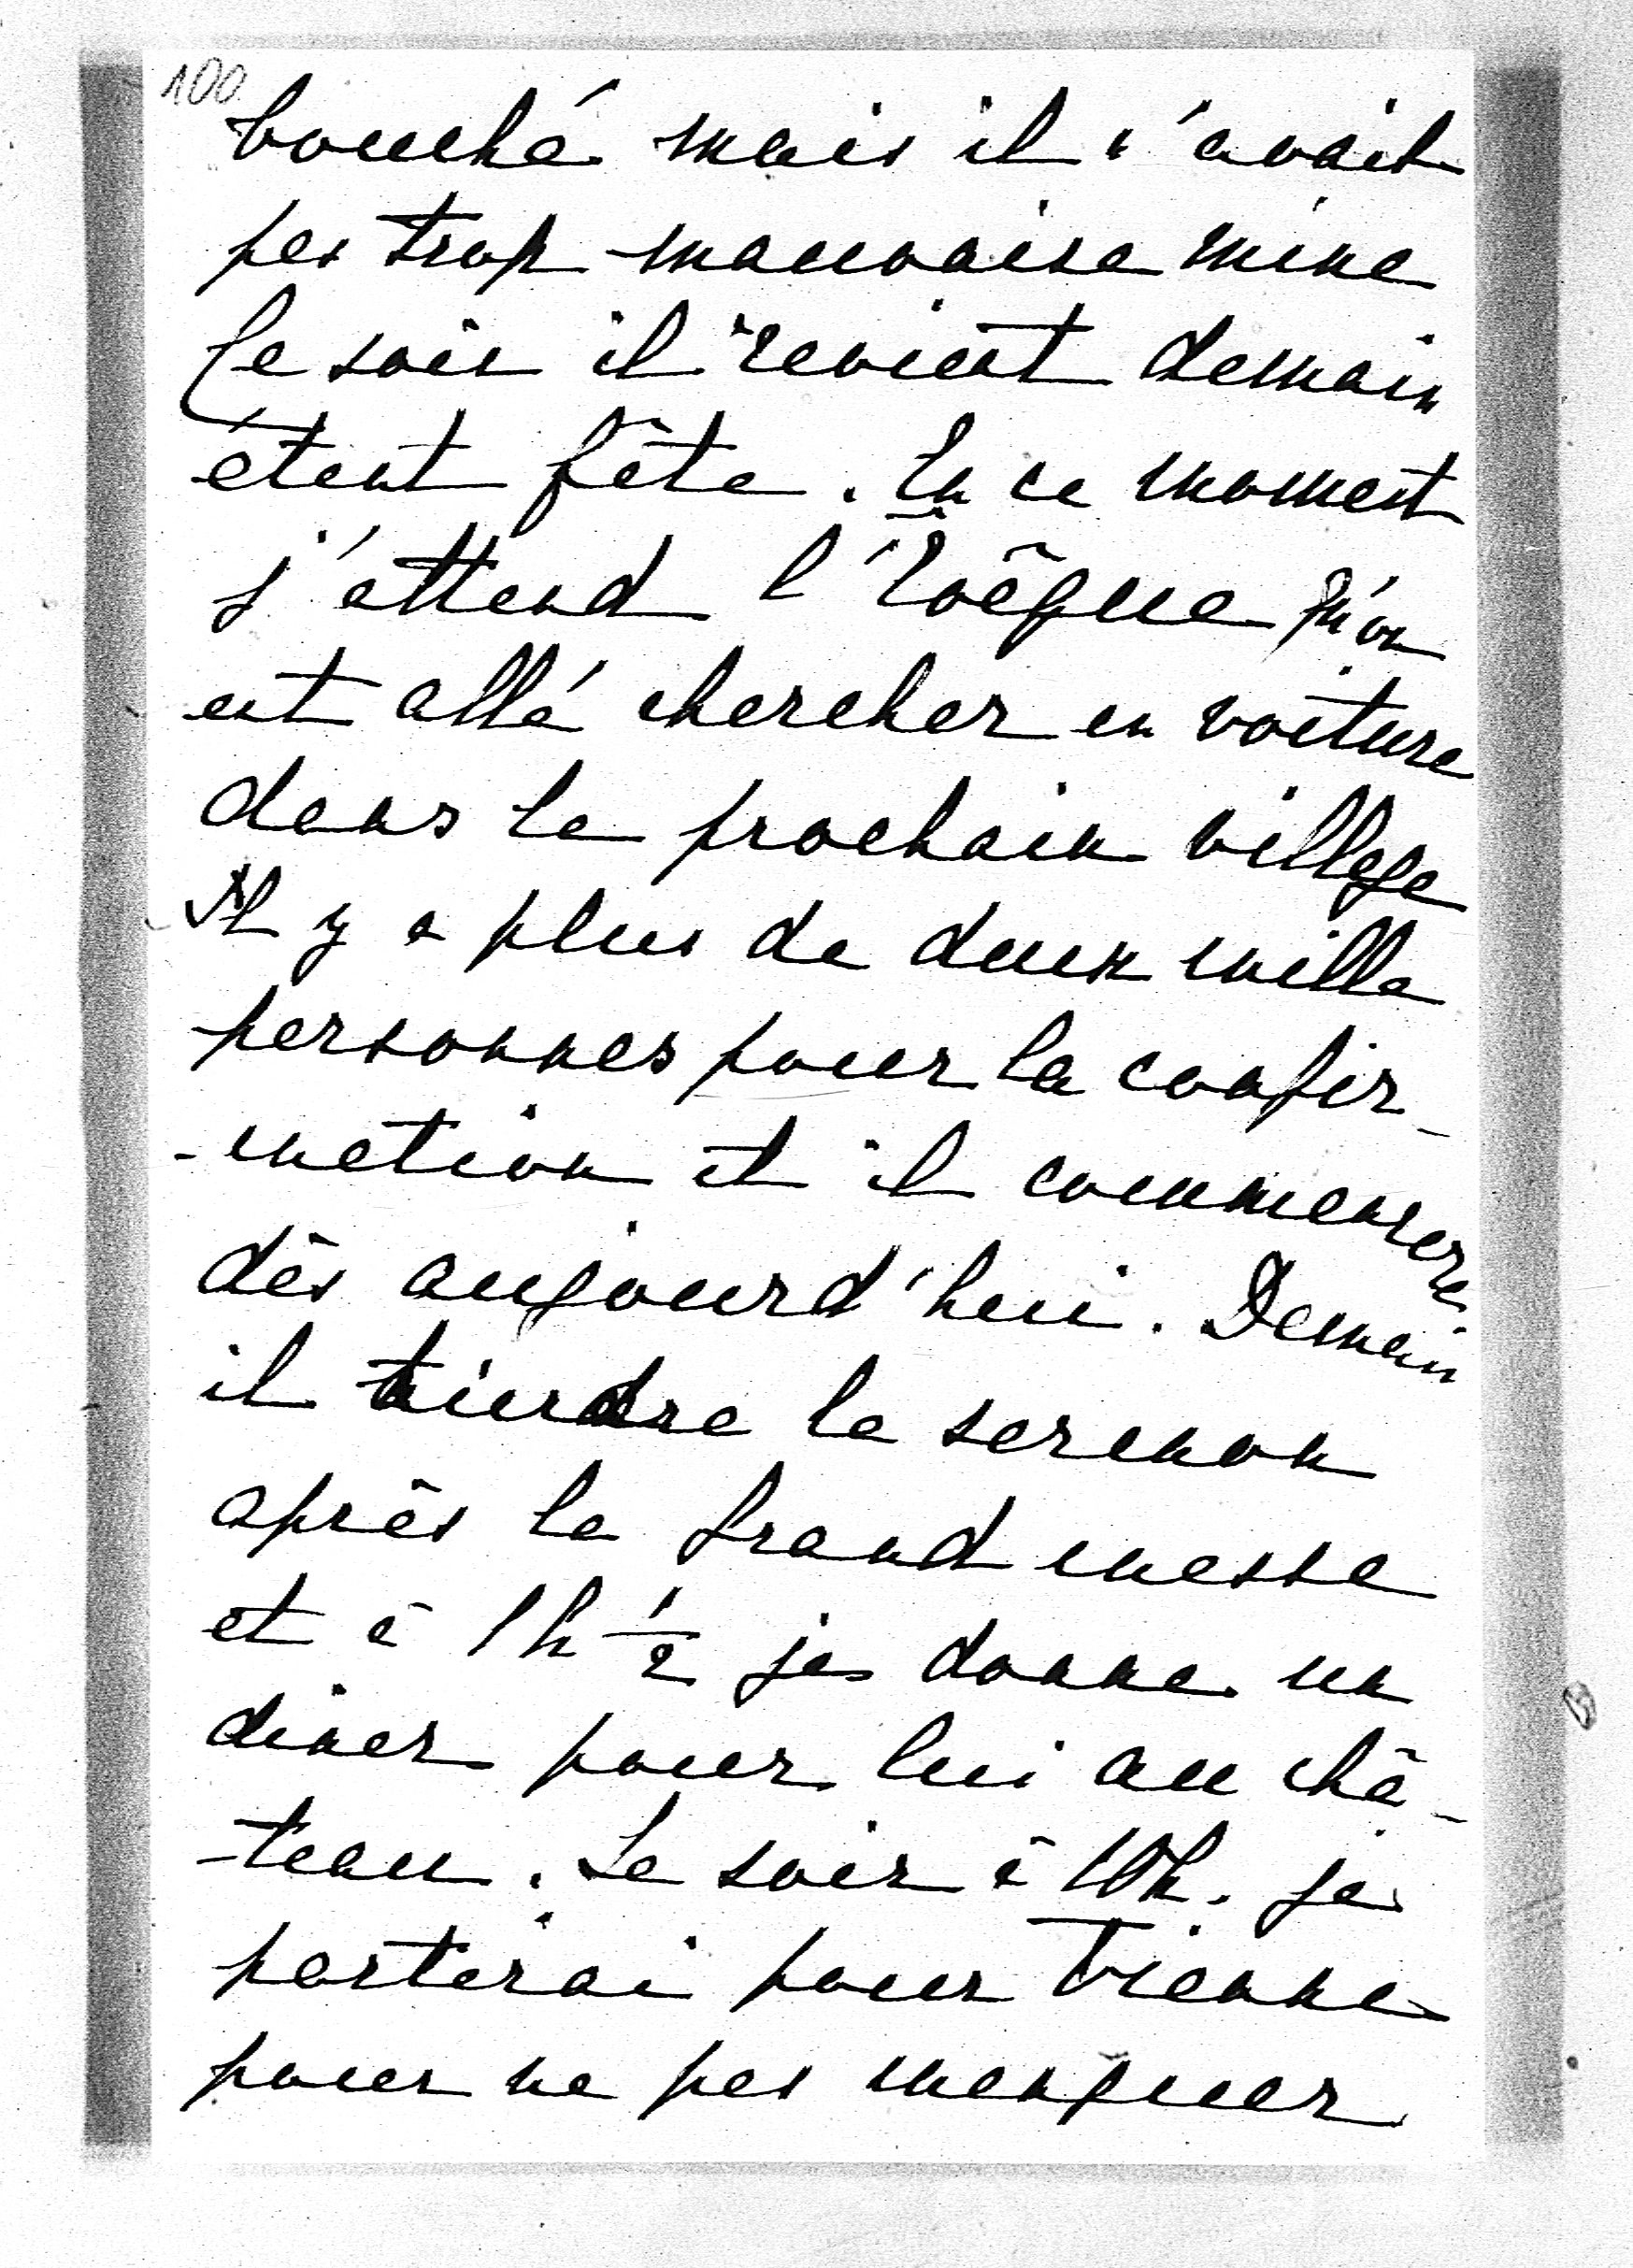 100.
bouché mais il n'avait
pas trop mauvaise mine
Ce soir il revient demain
étant fête. En ce moment
j'attend l'Evêque qu'on
est allé chercher en voiture
dans le prochain village
Il y a plus de deux mille
personnes pour la confir-
-mation et il commencera
dès aujourd'hui. Demain
il tiendra le sermon
après la grand messe
et à 1h 1/2 je donne un
diner pour lui au châ-
-teau. Le soir à 10h. je
partirai pour Vienne
pour ne pas manquer